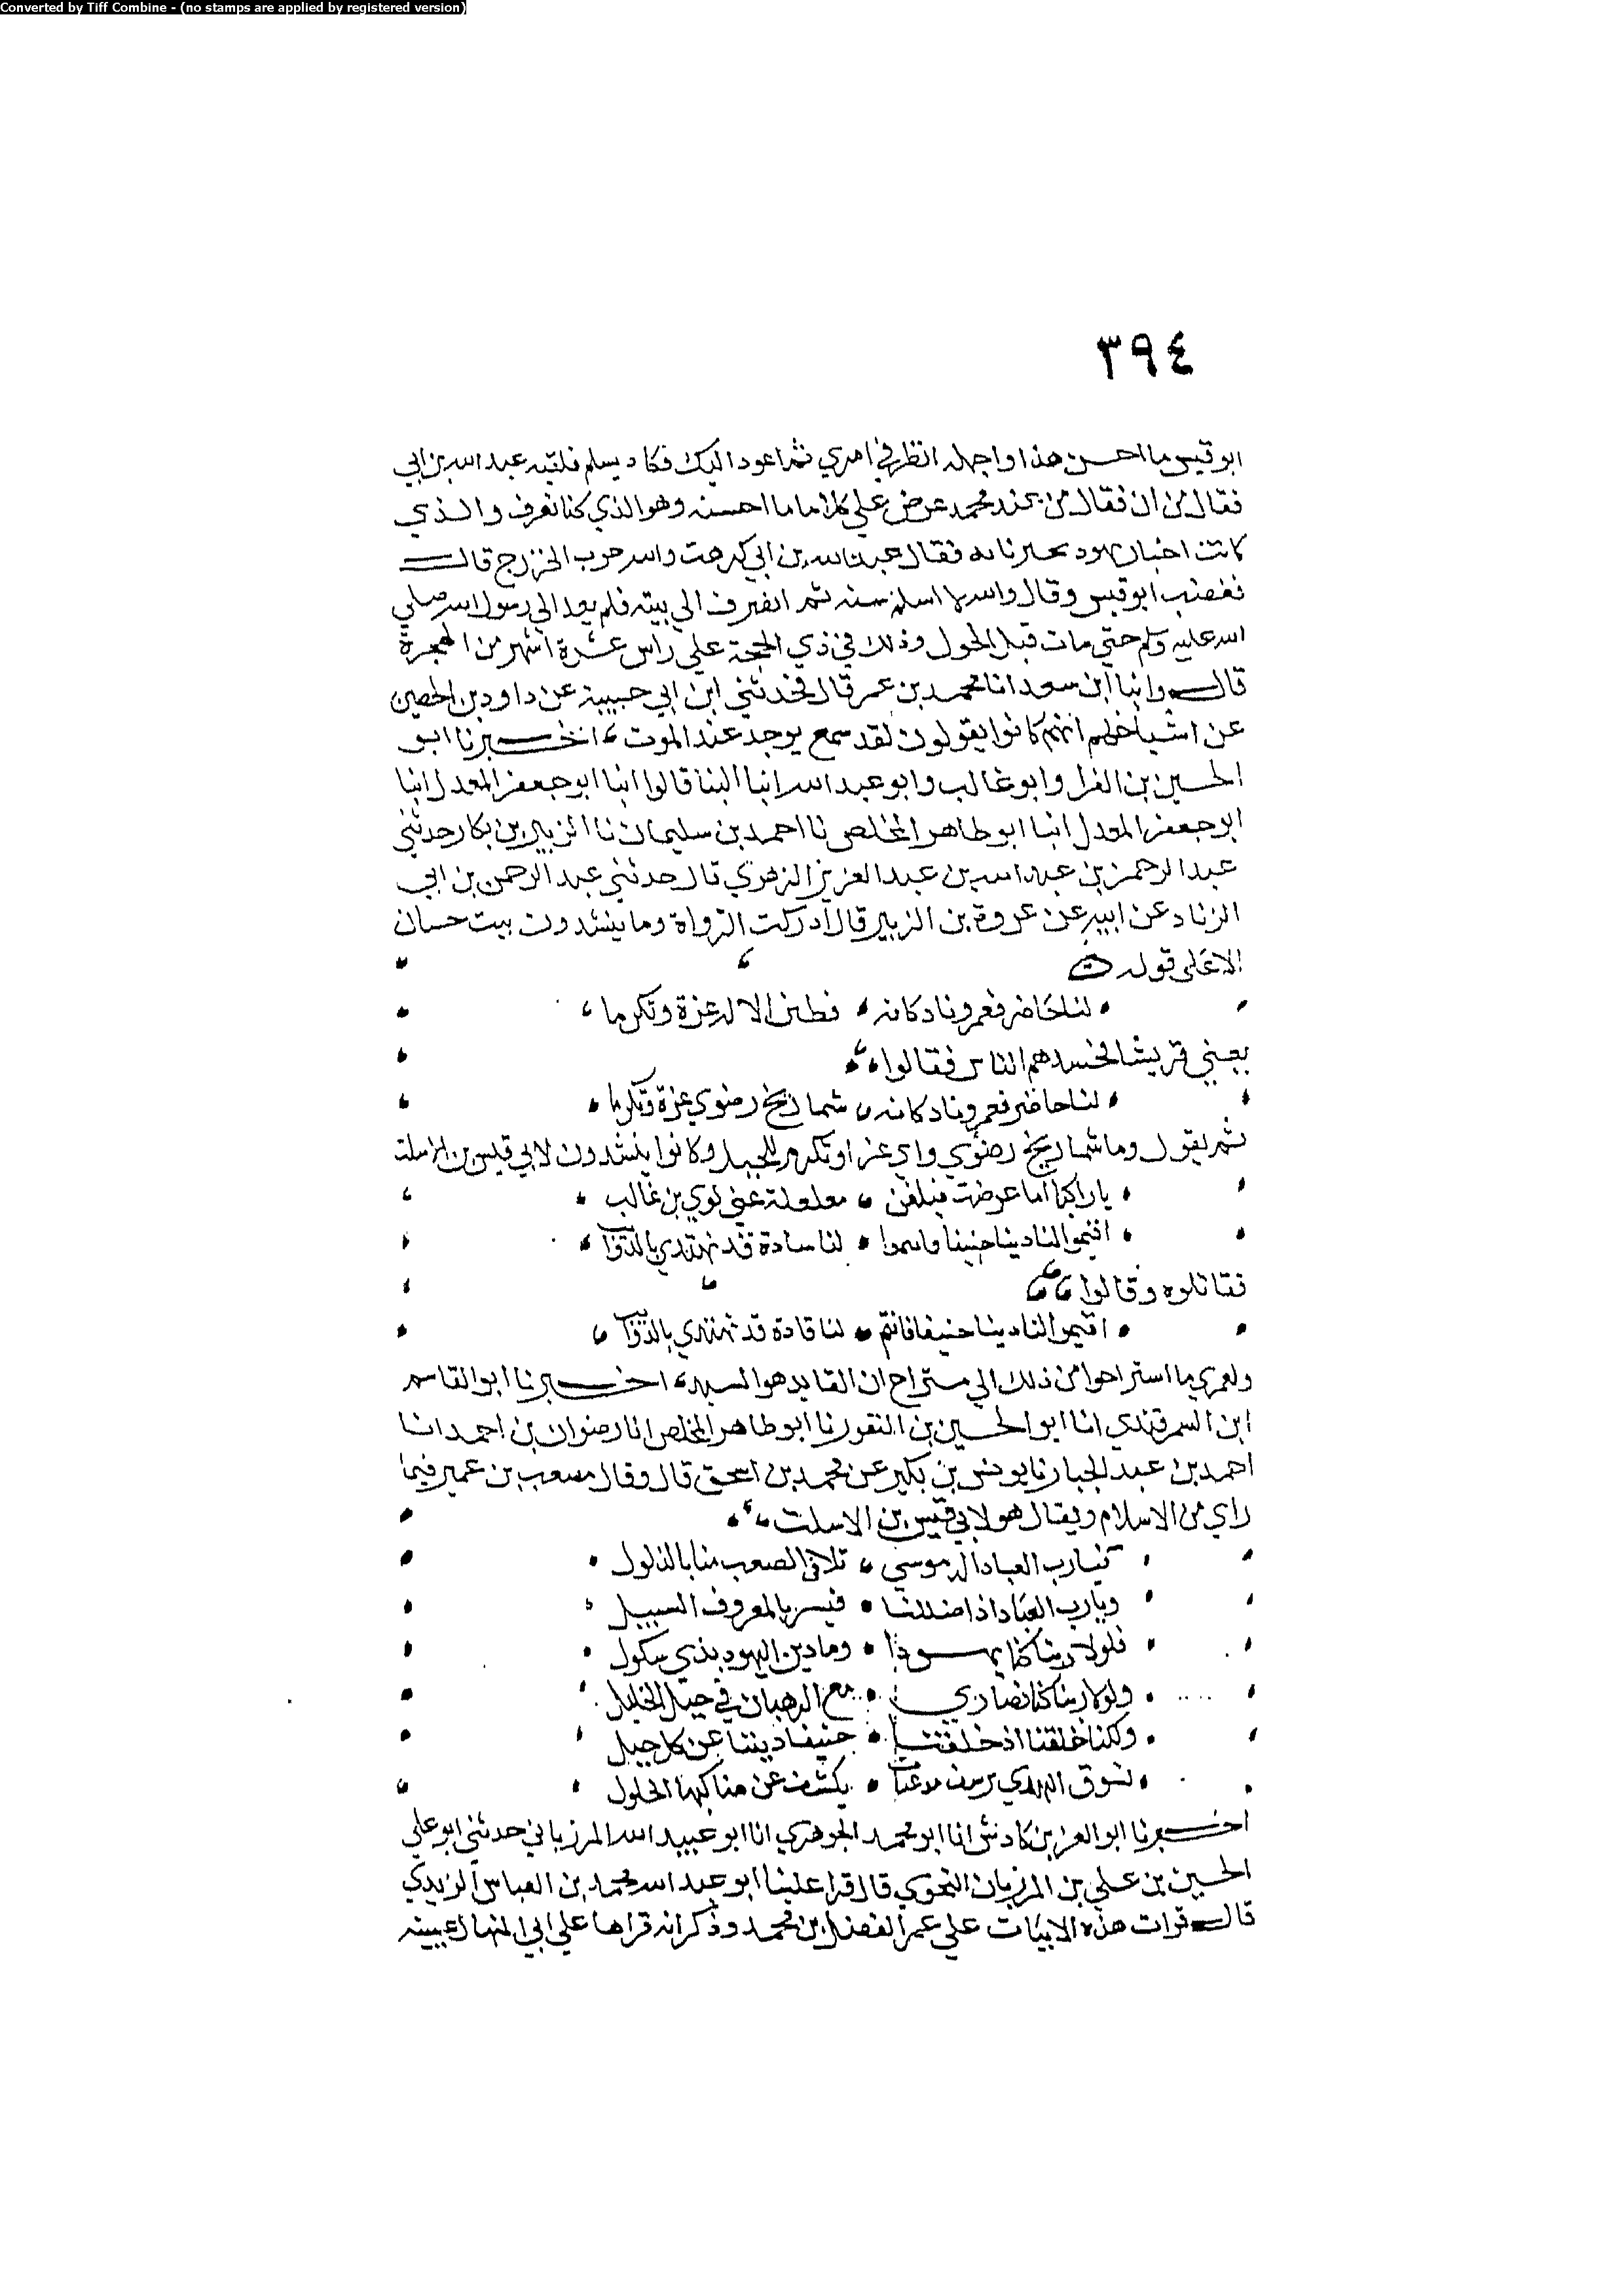 Converted by Tiff Combine - (no stamps are applied by registered version)
٣٩٤
ابو قيس ما احسن هذا واجمله انظر في امري ثم اعود اليك فكاد يسلم فلقيه عبد الله بن ابي
فقال من اين فقال من عند محمد عرض علي كلاما ما احسنه وهو الذي كنا نعرف والذي
كانت احبار يهود تخبرنا به فقال عبد الله بن ابي كرهت والله حرب الخزرج قال
فغضب ابو قيس وقال والله لا اسلم سنه ثم انصرف الي بيته فلم يعد الي رسول الله صلي
الله عليه وسلم حتي مات قبل الحول وذلك في ذي الحجة علي راس عشرة اشهر من الهجرة
قال وانبا ابن سعد انا محمد بن عمر قال فحدثني ابن ابي حبيبة عن داود بن الحصين
عن اشياخهم انهم كانوا يقولون لقد سمع يوحد عند الموت اخبرنا ابو
الحسين بن الفرا وابو غالب وابو عبد الله انبا البنا قالوا انبا ابو جعفر المعدل انبا
ابو جعفر المعدل انبا ابو طاهر المخلص نا احمد بن سليمان نا الزبير بن بكار حدثني
عبد الرحمن بن عبد الله بن عبد العزيز الزهري قال حدثني عبد الرحمن بن ابي
الزناد عن ابيه عن عروة بن الزبير قال ادركت الرواة وما ينشدون بيت حسان
الا علي قوله
لنا حاضر فعم وناد كانه فطين الاله عزة وتكرما
يعني قريشا فحسدهم الناس فقالوا
لنا حاضر فعم وناد كانه شماريخ رضوي عزة وتكرما
ثم يقول وما شماريخ رضوي واي عز او تكرم للجبل وكانوا ينشدون لابي قيس بن الاسلت
يا راكبا اما عرضت فبلغن مغلغلة عني لوي بن غالب
اقيموا لنا دينا حنيفا وانتموا لنا سادة قد نهتدي بالذوائب
فقاتلوه وقالوا
اقيموا لنا دينا حنيفا فانتم لنا قادة قد نهتدي بالذوائب
ولعمري ما استراحوا من ذلك الي مستراح ان القايد هو السيد اخبرنا ابو القاسم
ابن السمرقندي انا ابو الحسين بن النقور نا ابو طاهر المخلص انا رضوان بن احمد انا
احمد بن عبد الجبار نا يونس بن بكير عن محمد بن اسحق قال وقال مصعب بن عمير فيما
راي من الاسلام ويقال هو لابي قيس بن الاسلت
فيا رب العباد اله موسي تلافي الصعب منا بالذلول
ويا رب العباد اذا ضللنا فيسر بالمعروف السبيل
فلولا ربنا كنا يهودا وما دين اليهود بذي شكول
ولولا ربنا كنا نصاري مع الرهبان في جبل الخليل
ولكنا خلقنا اذ خلقنا حنيفا ديننا عن كل جيل
نسوق الهدي ترسف مذعنات يكشف عن مناكبها الحلول
اخبرنا ابو العز بن كادش انا ابو محمد الجوهري انا ابو عبيد الله المرزباني حدثني ابو علي
الحسين بن علي بن المرزبان النحوي قال قرا علينا ابو عبد الله محمد بن العباس اليزيدي
قال قرات هذه الابيات علي عمر الفضل بن محمد وذكر انه قراها علي ابي المنهال عيينه